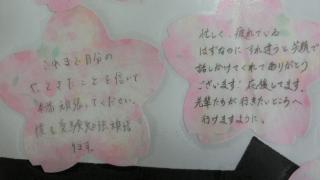 これまで自分の
やってきたことを信じて
頑張ってください。
僕も受験勉強頑張
ります。
忙しく、疲れている
はずなのに、すれ違うと笑顔で
話しかけてくれてありがとう
ございます!応援してます。
先輩たちが行きたいところへ
行けますように。